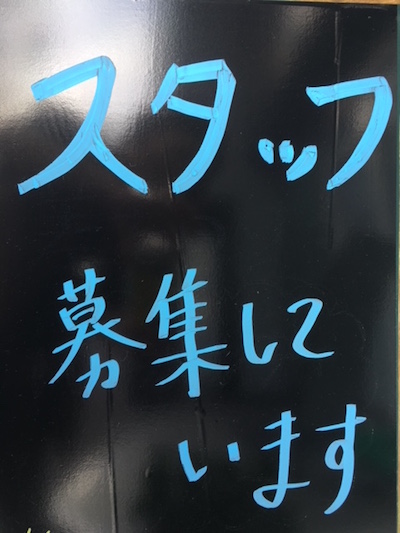 スタッフ
募集して
います